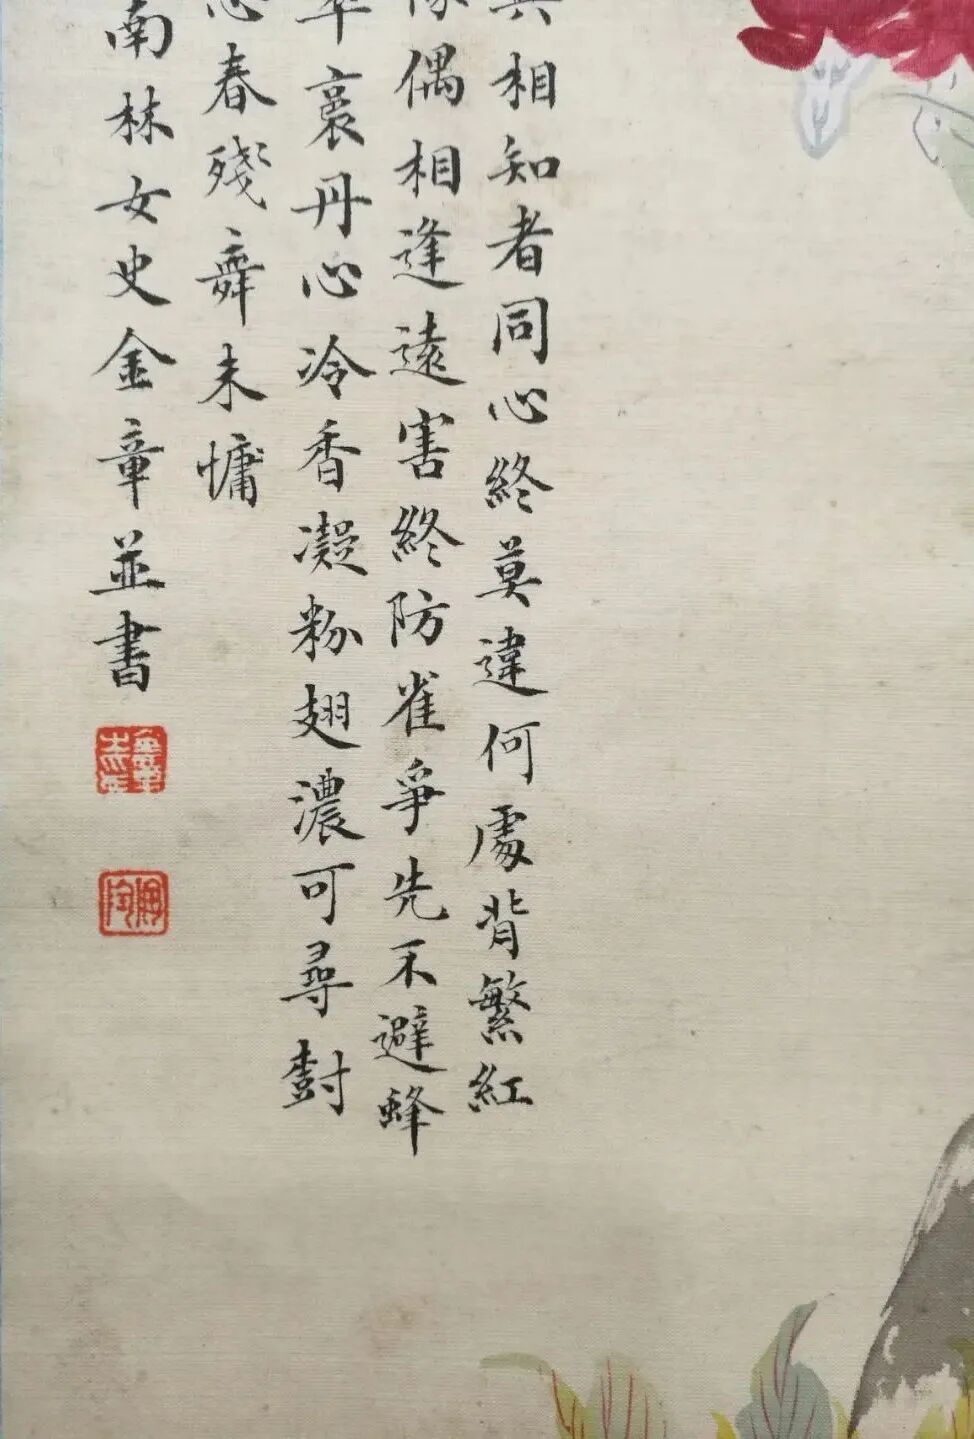 相知者同心終莫違何處背繁紅
偶相逢遠害終防雀爭先不避蜂
裏丹心冷香凝粉翅濃可尋對
春殘舞未慵
南林女史金章並書
金章